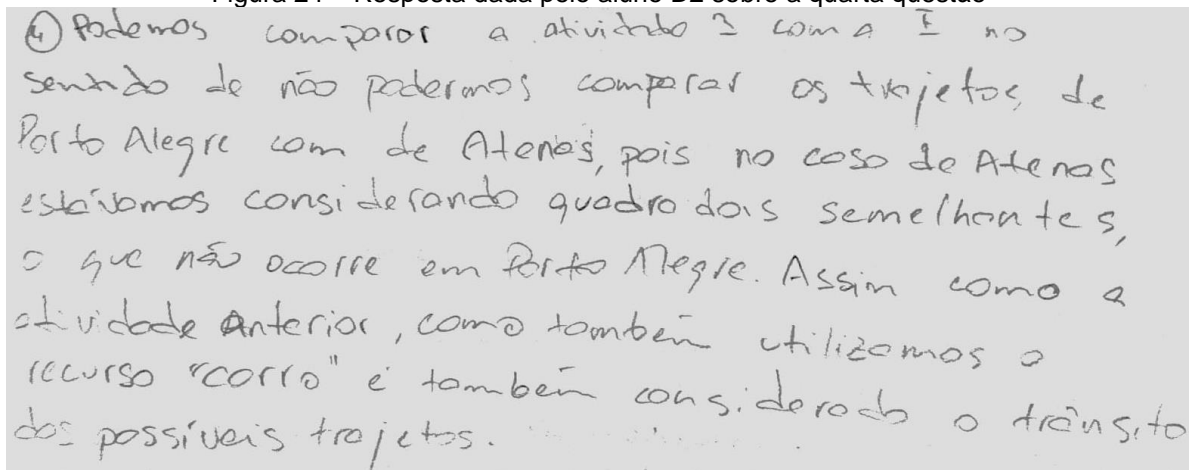 Figura 24 – Resposta dada pelo aluno D2 sobre a quarta questão
④ Podemos comparar a atividade 3 com a I no
sentido de não podermos comparar os trajetos de
Porto Alegre com de Atenas, pois no caso de Atenas
estávamos considerando quadrados semelhantes,
o que não ocorre em Porto Alegre. Assim como a
atividade Anterior, como também utilizamos o
recurso "carro" é também considerado o trânsito
dos possíveis trajetos.